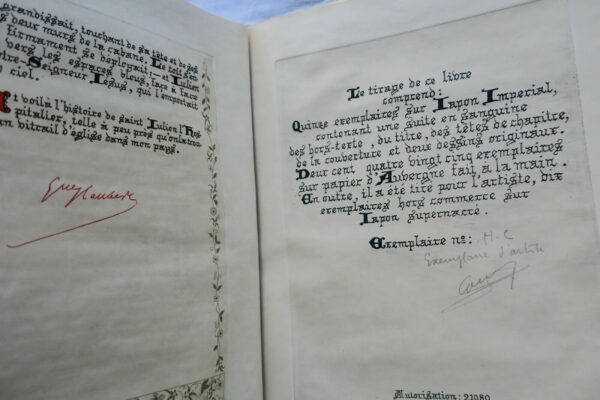 grandissait, touchant de sa tête et de ses
deux murs de la cabane. Le
firmament se déployait; et Julien
vers les espaces bleus, face à face
Seigneur Jésus, qui l'emportait
ciel.
Et voilà l'histoire de saint Julien l'Hos
pitalier, telle à peu près qu'on la trou
vitrail d'église dans mon pays.
Gve Flaubert
Le tirage de ce livre
comprend:
Quinze exemplaires sur Japon Impérial,
contenant une suite en sanguine
des hors-texte, du titre, des têtes de chapitre,
de la couverture et deux dessins originaux.
Deux cent quatre vingt cinq exemplaires
sur papier d'Auvergne fait à la main.
En outre, il a été tiré pour l'artiste, dix
exemplaires hors commerce sur
Japon supernacré.
Exemplaire no: H.C
Exemplaire d'artiste
Autorisation: 21080